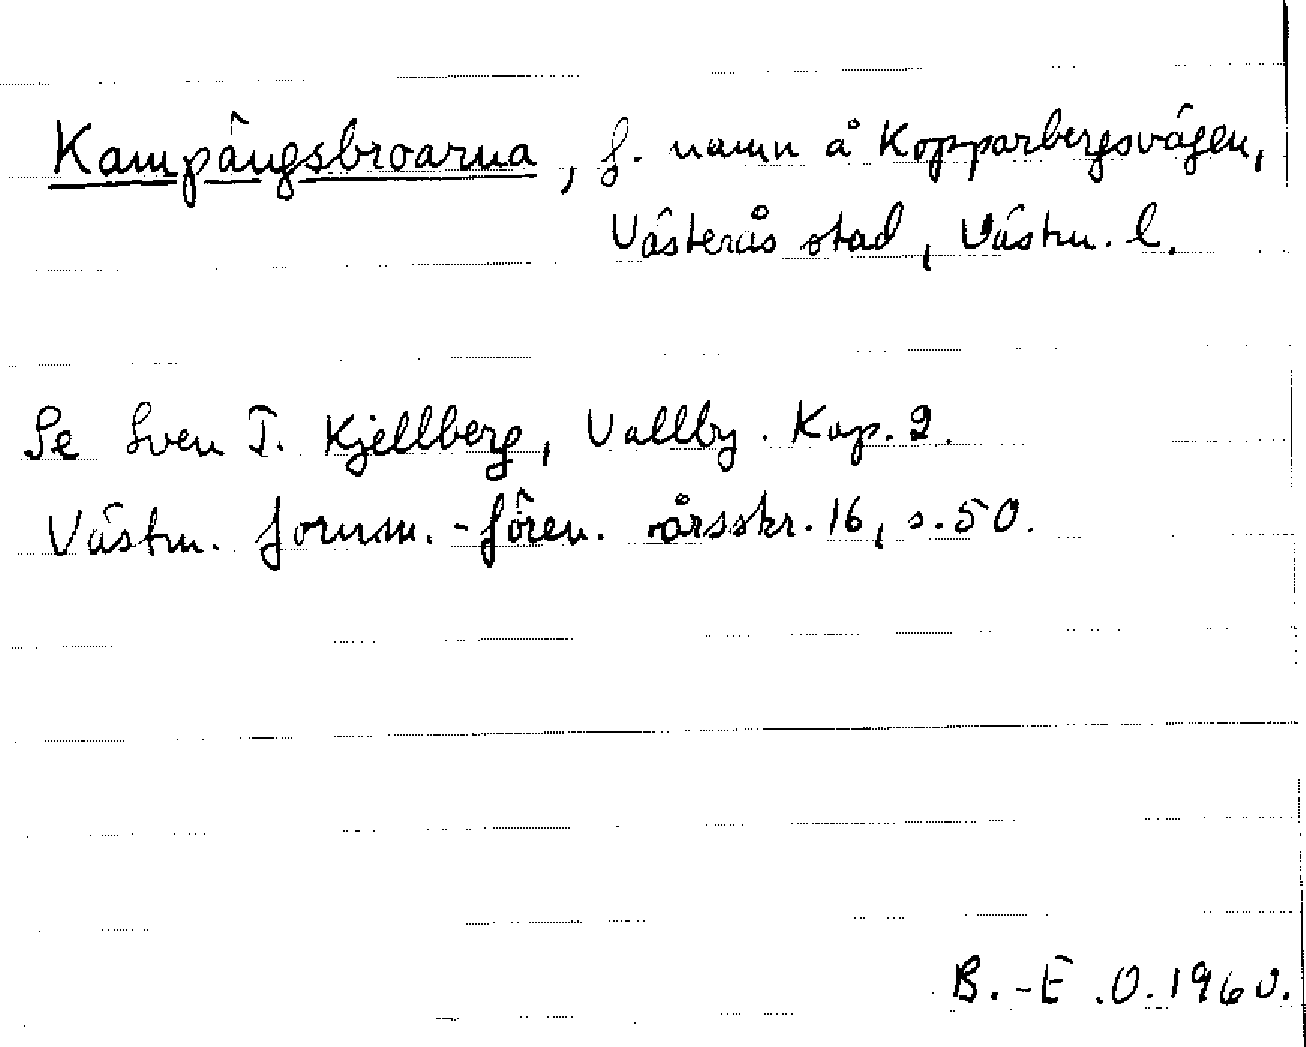 Kampängsbroarna, f. namn å Kopparbergsvägen,
Västerås stad, Västm. l.
Se Sven T. Kjellberg, Vallby. Kap. 2.
Västm. fornm.-fören. årsskr. 16, s. 50.
B.-E.O. 1960.